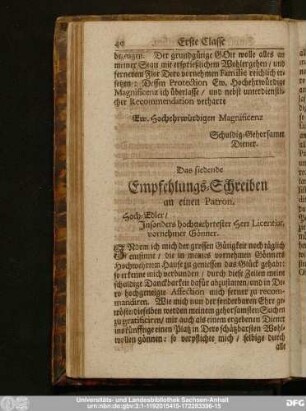 40 Erste Classe
bezeugen. Der grundgütige GOtt wolle alles an
meiner Statt mit ersprießlichem Wohlergehen / und
fernerem Flor Dero vornehmen Familie reichlich er-
setzen: Dessen Protection Ew. Hochehrwürdige
Magnificenz ich überlasse / und nebst unterdienstli-
cher Recommendation verharre
Ew. Hochehrwürdigen Magnificenz
Schuldig-Gehorsamer
Diener.
Das siebende
Empfehlungs-Schreiben
an einen Patron.
Hoch-Edler /
Insonders hochgeehrtester Herr Licentiat,
vornehmer Gönner.
INdem ich mich der grossen Gütigkeit noch täglich
entsinne / die in meines vornehmen Gönners
Hochwehrtem Hause zu geniessen das Glück gehabt:
so erkenne mich verbunden / durch diese Zeilen meine
schuldige Danckbarkeit dafür abzustatten, und in De-
ro hochgeneigte Affection mich ferner zu recom-
mandiren. Wie mich nun der sonderbaren Ehre ge-
tröste: dieselben werden meinem gehorsamsten Suchen
zu gratificiren / mir auch als einem ergebenen Diener
inskünfftige einen Platz in Dero schätzbarsten Wohl-
wollen gönnen: so verpflichte mich / selbige durch
alle
Universitäts- und Landesbibliothek Sachsen-Anhalt
urn:nbn:de:gbv:3:1-1192015415-172283396-15
DFG